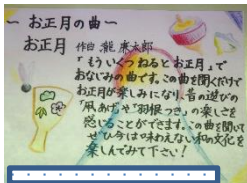 ～お正月の曲～
お正月 作曲 瀧 廉太郎
「もういくつねるとお正月」で
おなじみの曲です。この曲を聞くだけで
お正月が楽しみになり、昔の遊びの
「凧あげ」や「羽根つき」の楽しさを
感じることができます。この曲を聞いて
ぜひ今は味わえない和の文化を
楽しんでみて下さい!